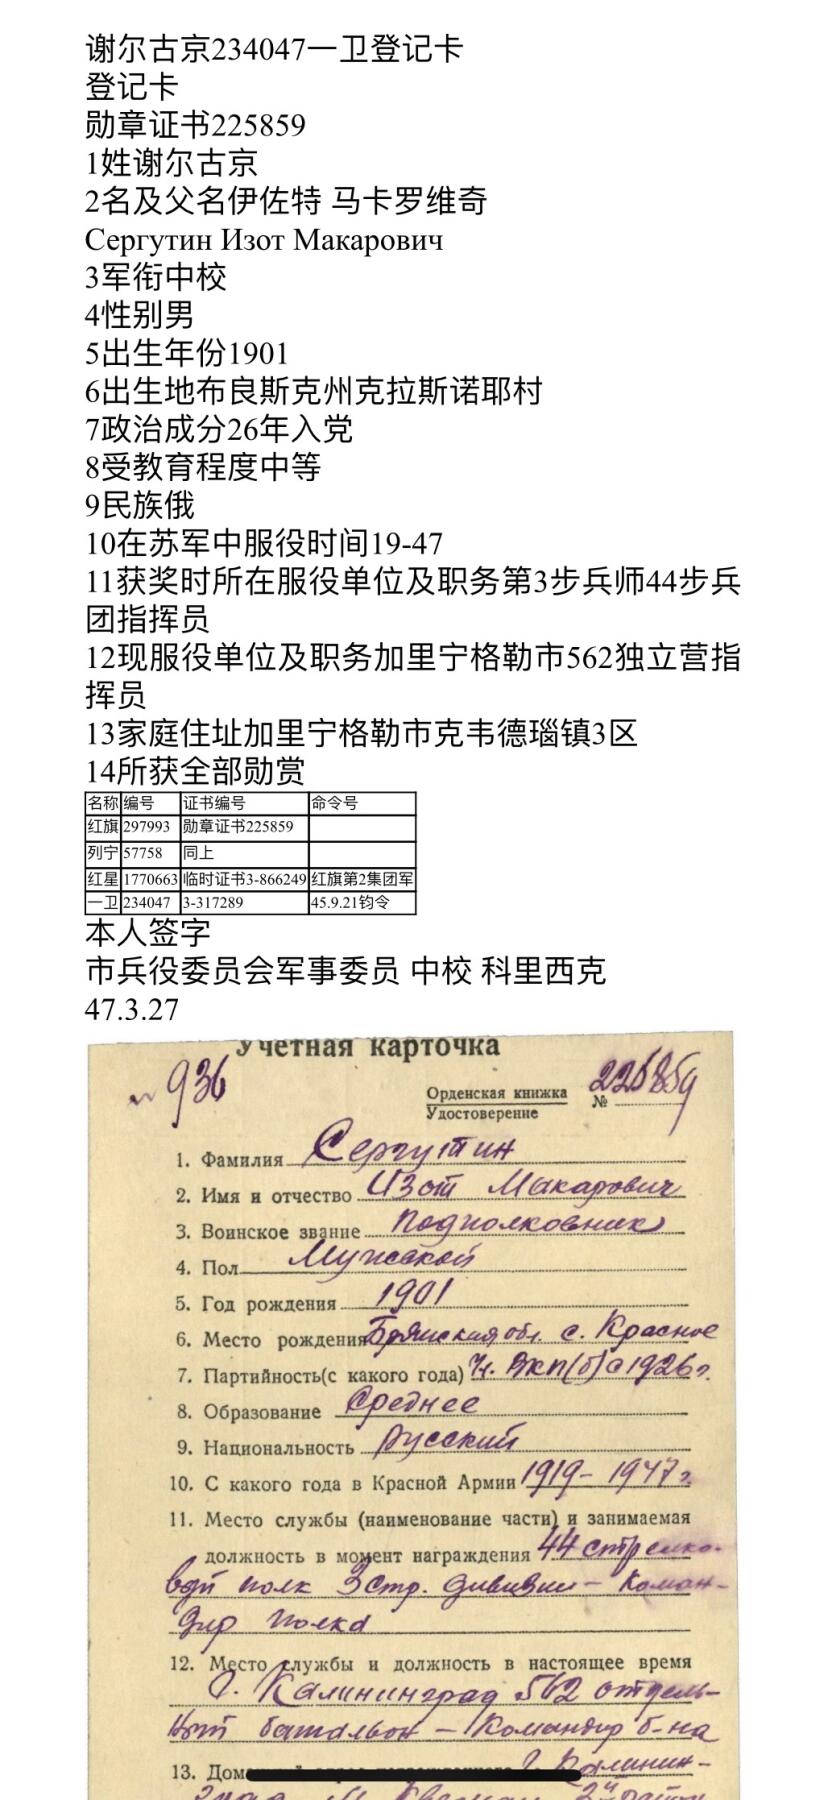 谢尔古京234047一卫登记卡
登记卡
勋章证书225859
1姓谢尔古京
2名及父名伊佐特 马卡罗维奇
Сергутин Изот Макарович
3军衔中校
4性别男
5出生年份1901
6出生地布良斯克州克拉斯诺耶村
7政治成分26年入党
8受教育程度中等
9民族俄
10在苏军中服役时间19-47
11获奖时所在服役单位及职务第3步兵师44步兵
团指挥员
12现服役单位及职务加里宁格勒市562独立营指
挥员
13家庭住址加里宁格勒市克韦德瑙镇3区
14所获全部勋赏
名称 编号 证书编号 命令号
红旗 297993 勋章证书225859
列宁 57758 同上
红星 1770663 临时证书3-866249 红旗第2集团军
一卫 234047 3-317289 45.9.21钧令
本人签字
市兵役委员会军事委员 中校 科里西克
47.3.27
Учетная карточка
936
Орденская книжка
Удостоверение
№ 225859
1. Фамилия Сергутин
2. Имя и отчество Изот Макарович
3. Воинское звание Подполковник
4. Пол Мужской
5. Год рождения 1901
6. Место рождения Брянская обл. с. Красное
7. Партийность(с какого года) Чл. ВКП(б) с 1926г.
8. Образование Среднее
9. Национальность Русский
10. С какого года в Красной Армии 1919-1947г.
11. Место службы (наименование части) и занимаемая
должность в момент награждения 44 стрелко-
вый полк 3 стр. дивизии - Коман-
дир полка
12. Место службы и должность в настоящее время
г. Калининград 562 отдель-
ный батальон - Командир б-на
13. Дом г. Калинин-